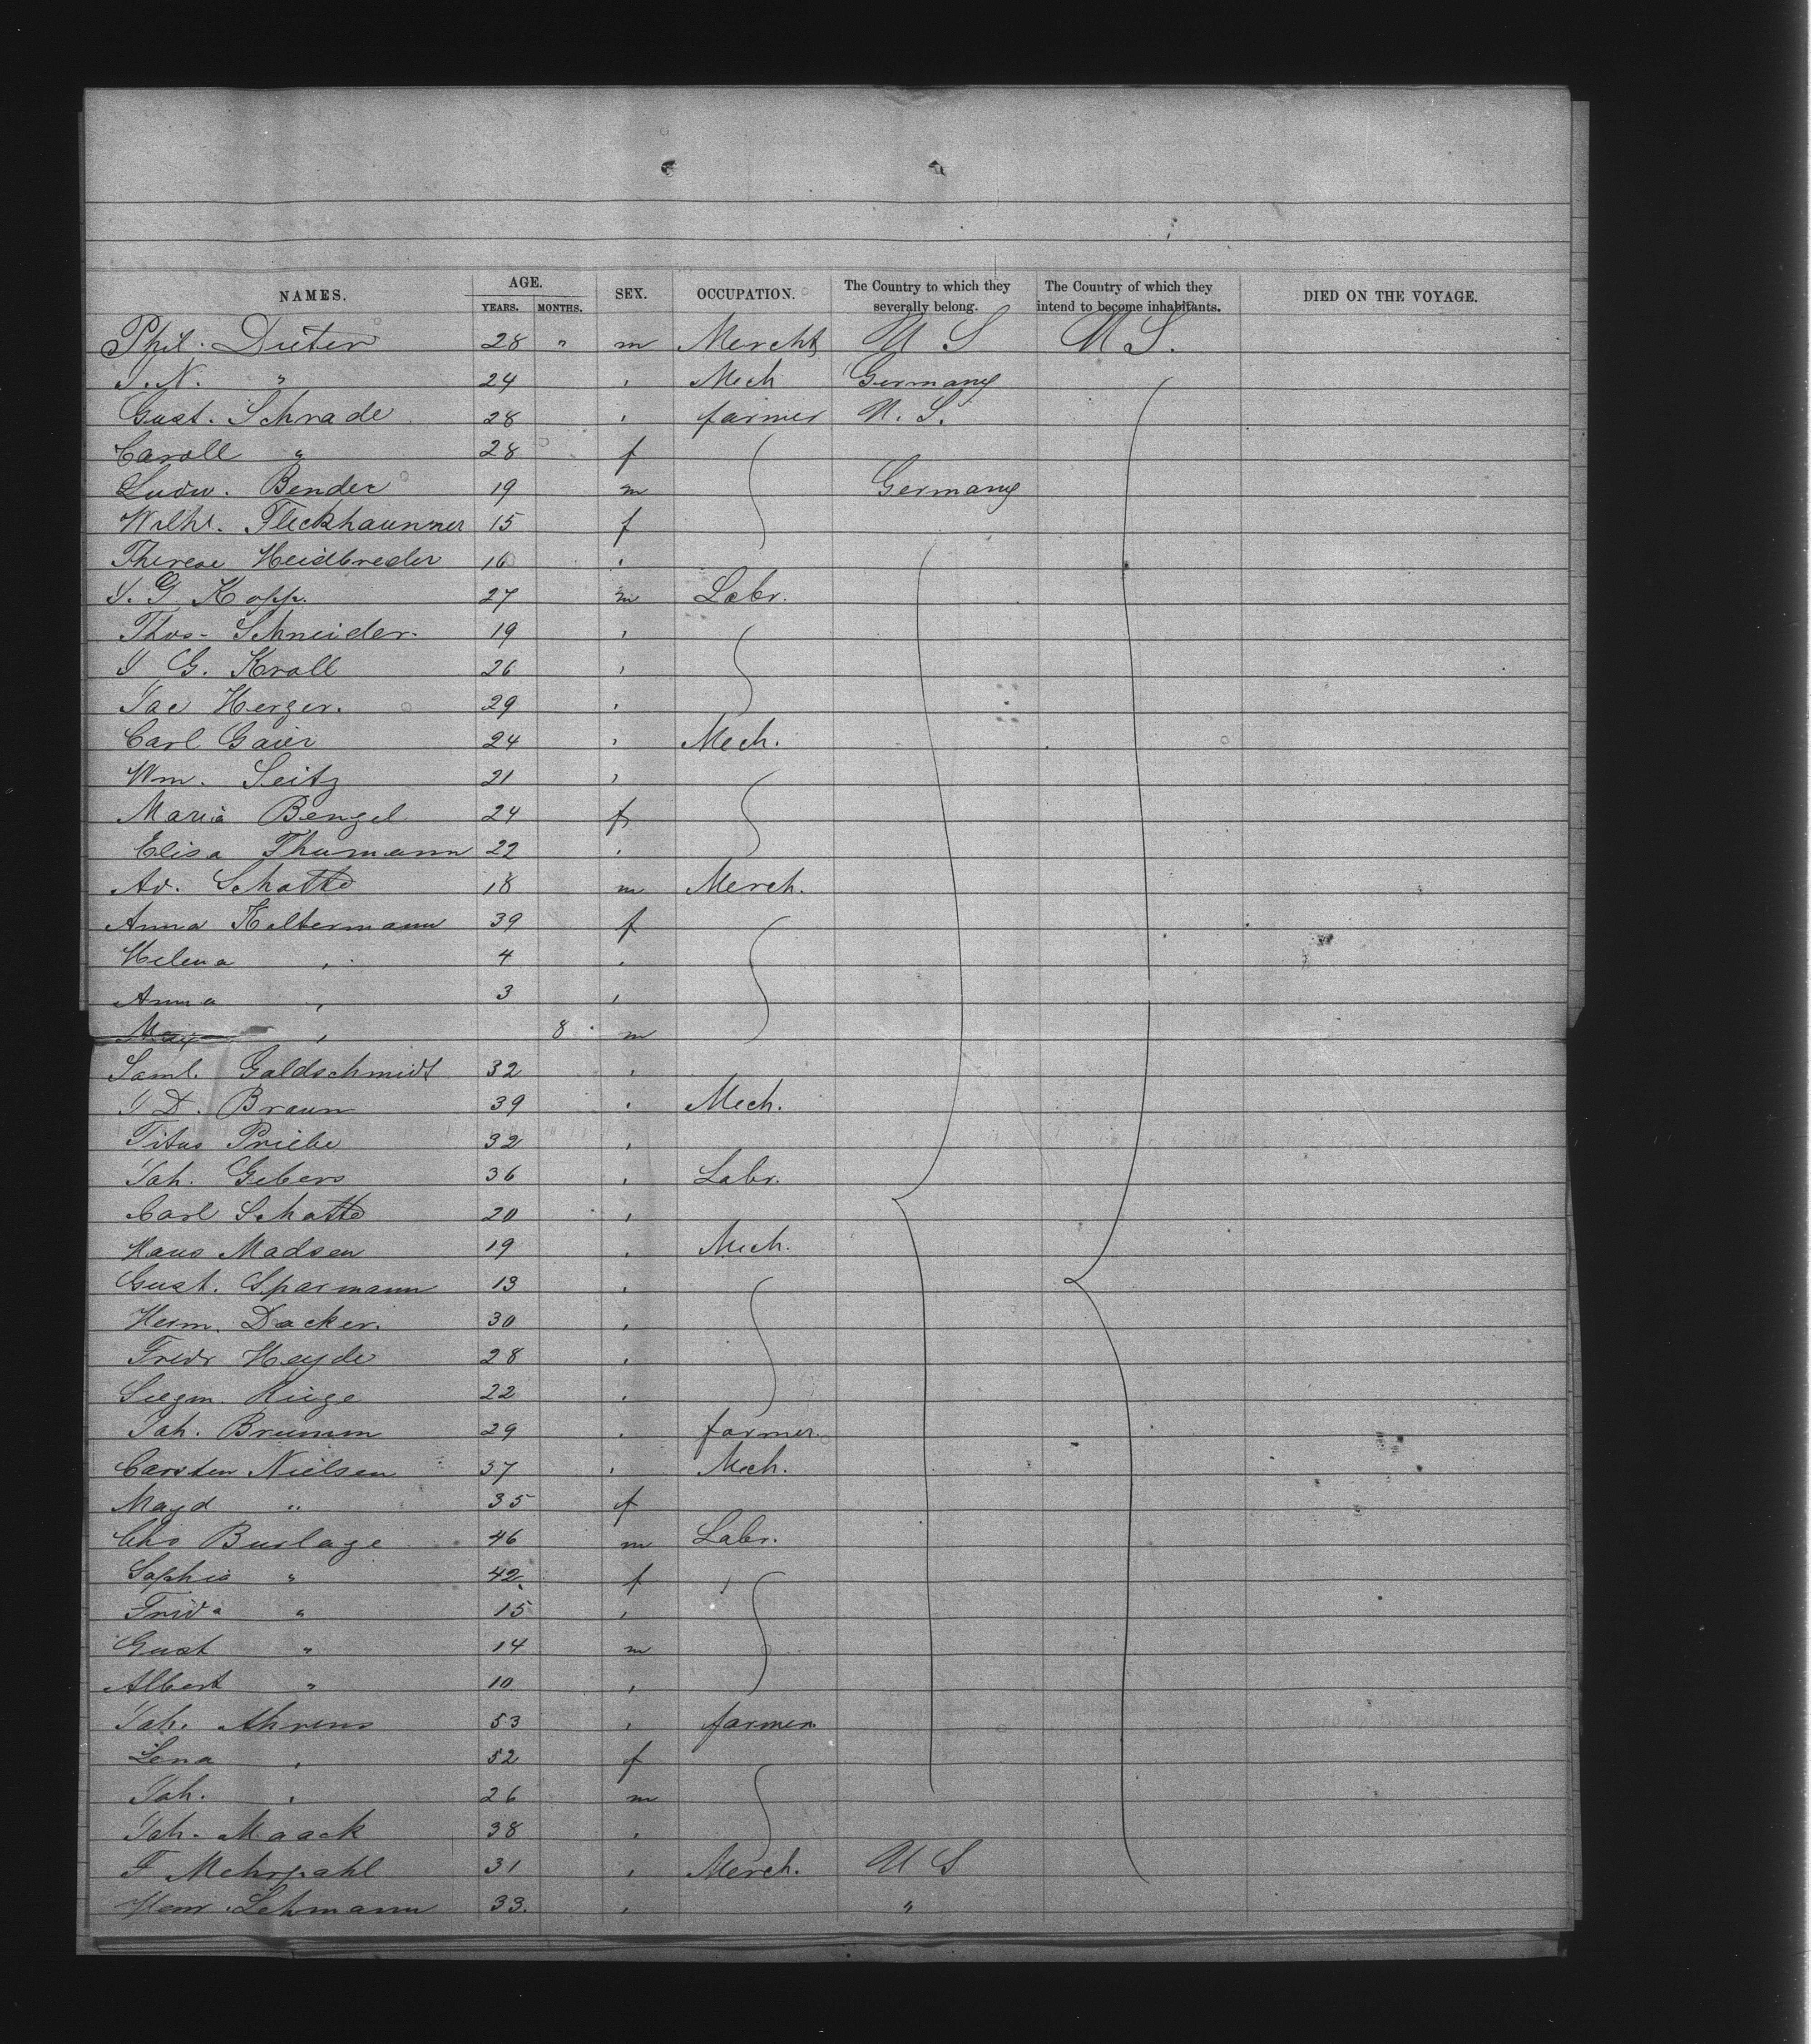 NAMES. AGE. SEX. OCCUPATION. The Country to which they severally belong. The Country of which they intend to become inhabitants. DIED ON THE VOYAGE.
YEARS. MONTHS.
Phil. Dieter 28 " m Mercht U S U S.
J. N. " 24 , Mech Germany
Gust. Schrade 28 , farmer U. S.
Caroll " 28 f
Ludw. Bender 19 m Germany
Wilh. Fleckhaummer 15 f
Therese Heidbreder 16 ,
J. G. Kopp. 27 m Labr.
Thos. Schneider. 19 ,
J G. Kroll 26 ,
Jac Herzer. 29 ,
Carl Gaier 24 , Mech.
Wm. Seitz 21 ,
Maria Bengel 24 f
Elisa Thumann 22 ,
Ad. Schotte 18 m Merch.
Anna Koltermann 39 f
Helena , 4 ,
Anna , 3 ,
Max , 8 m
Saml. Goldschmidt 32 ,
J D. Braun 39 , Mech.
Titus Priebe 32 ,
Joh. Gebers 36 , Labr.
Carl Schotte 20 ,
Hans Madsen 19 , Mech.
Gust. Sparmann 13 ,
Herm. Dacker. 30 ,
Fredr Heyde 28 ,
Siegm. 22 ,
Joh. Brumm 29 , farmer.
Carsten Nielsen 37 , Mech.
Magd " 35 f
Chs Burlage 46 m Labr.
Sophia " 42 f ,
Frida " 15 ,
Gust " 14 m
Albert " 10 ,
Joh. Ahrens 53 , farmer
Lena , 52 f
Joh. , 26 m
Joh. Maack 38 ,
F Mehrpahl 31 , Merch. U S
Henr. Lehmann 33. , "